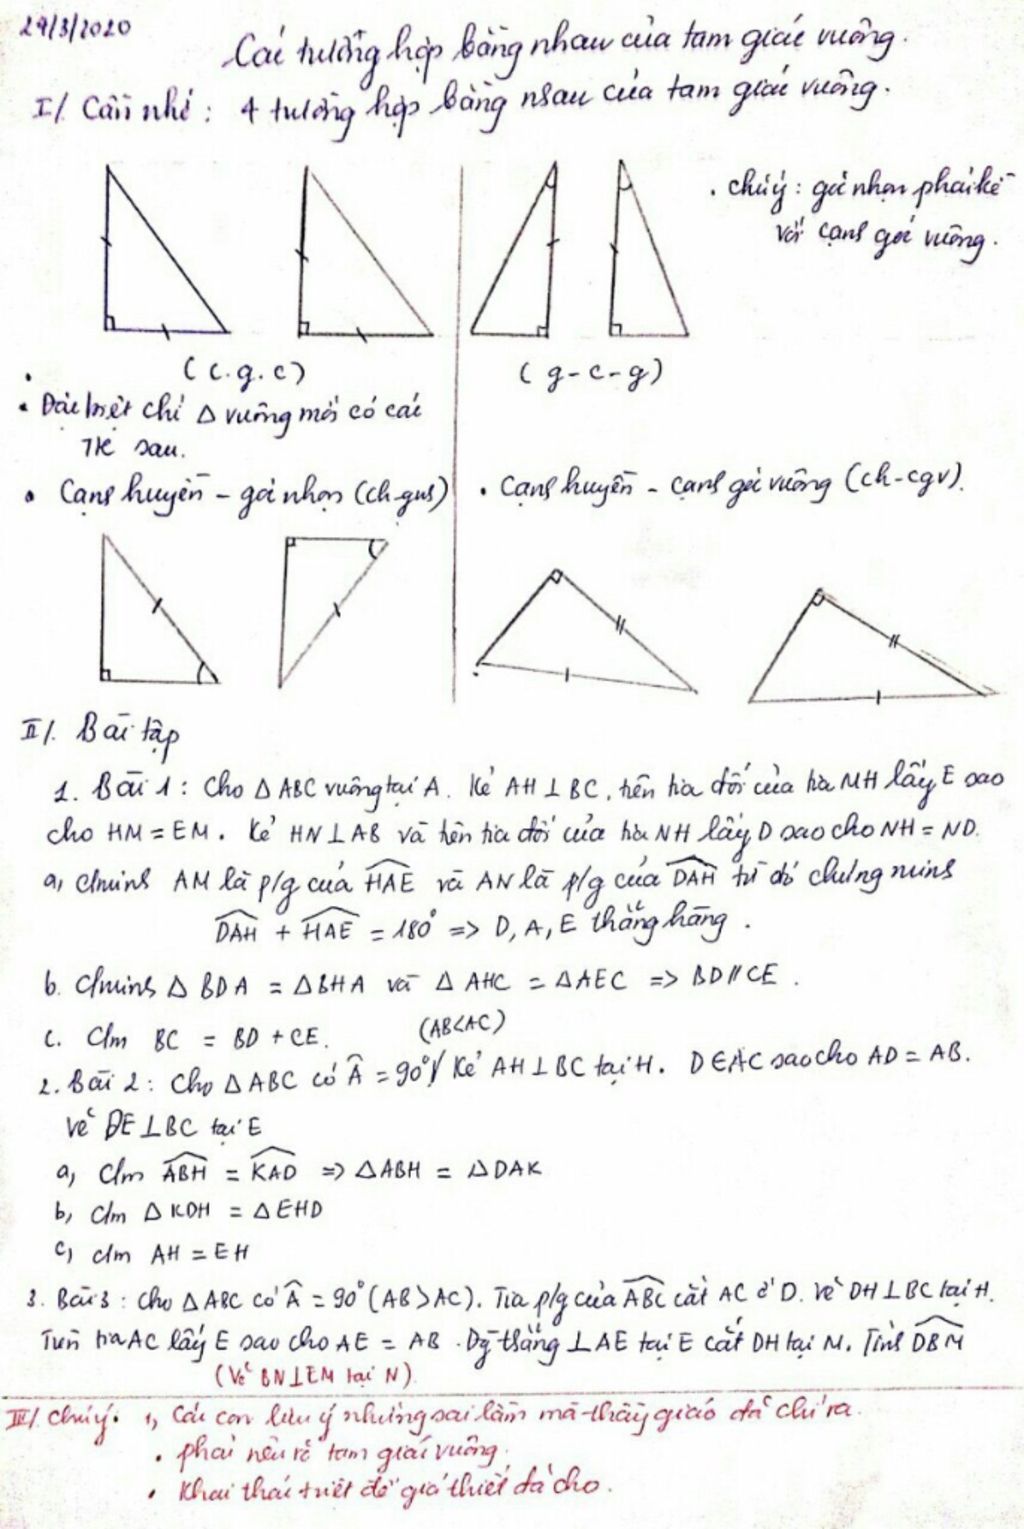 29/3/2020
Các trường hợp bằng nhau của tam giác vuông.
I/. Cần nhớ : 4 trường hợp bằng nhau của tam giác vuông.
. chú ý : góc nhọn phải kề
với cạnh góc vuông.
(c.g.c)
(g-c-g)
. Đặc biệt chỉ Δ vuông mới có các
TH sau.
. Cạnh huyền - góc nhọn (ch-gnh)
. Cạnh huyền - cạnh góc vuông (ch-cgv).
II/. Bài tập
1. Bài 1 : Cho Δ ABC vuông tại A. Kẻ AH ⊥ BC, trên tia đối của tia MH lấy E sao
cho HM = EM. Kẻ HN ⊥ AB và trên tia đối của tia NH lấy D sao cho NH = ND.
a, c/minh AM là p/g của HAE và AN là p/g của DAH từ đó chứng minh
DAH + HAE = 180° => D, A, E thẳng hàng.
b. C/minh Δ BDA = Δ BHA và Δ AHC = Δ AEC => BD // CE.
c. C/m BC = BD + CE.
(AB<AC)
2. Bài 2 : Cho Δ ABC có Â = 90°/ Kẻ AH ⊥ BC tại H. D ∈ AC sao cho AD = AB.
Vẽ DE ⊥ BC tại E
a, C/m ABH = KAD => Δ ABH = Δ DAK
b, c/m Δ KDH = Δ EHD
c, c/m AH = EH
3. Bài 3 : Cho Δ ABC có Â = 90° (AB > AC). Tia p/g của ABC cắt AC ở D. Vẽ DH ⊥ BC tại H.
Trên tia AC lấy E sao cho AE = AB. Đg thẳng ⊥ AE tại E cắt DH tại M. Tính DBM
(Vẽ BN ⊥ EM tại N).
III/. Chú ý. 1, Các con lưu ý những sai lầm mà thầy giáo đã chỉ ra.
. phải nêu rõ tam giác vuông.
. Khai thác triệt để giả thiết đã cho.